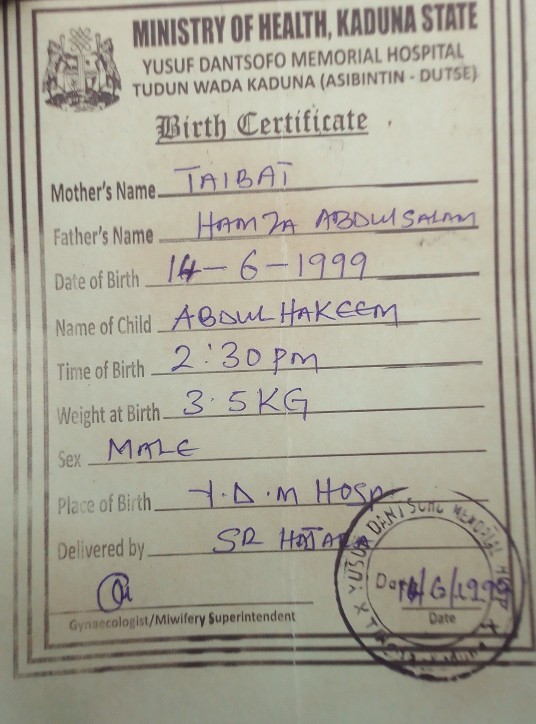 MINISTRY OF HEALTH, KADUNA STATE
YUSUF DANTSOFO MEMORIAL HOSPITAL
TUDUN WADA KADUNA (ASIBINTIN - DUTSE)
Birth Certificate
Mother's Name TAIBAT
Father's Name HAMZA ABDULSALAM
Date of Birth 14-6-1999
Name of Child ABDULHAKEEM
Time of Birth 2:30pm
Weight at Birth 3.5KG
Sex MALE
Place of Birth Y.D.M HOSP
Delivered by SR
YUSUF DANTSOHO MEMORIAL HOSP
14/6/1999
Date
Gynaecologist/Miwifery Superintendent